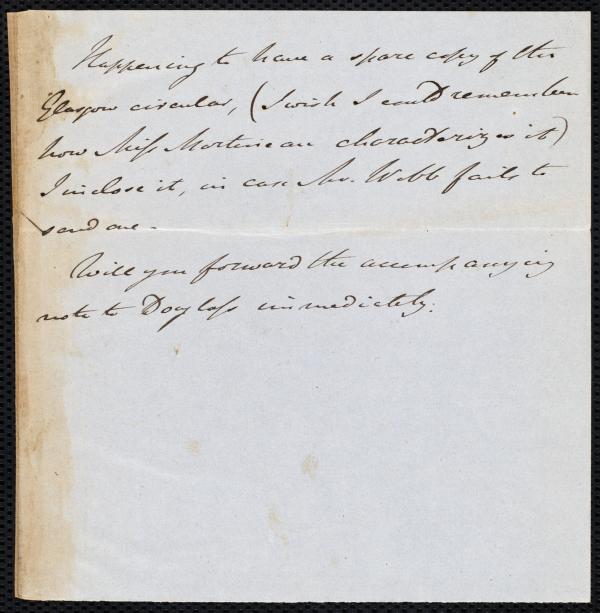 Happening to have a spare copy of the
Glasgow circular, (I wish I could remember
how Miss Martineau characterizes it)
I inclose it, in case Mr. Webb fails to
send one.
Will you forward the accompanying
note to Douglass immediately.